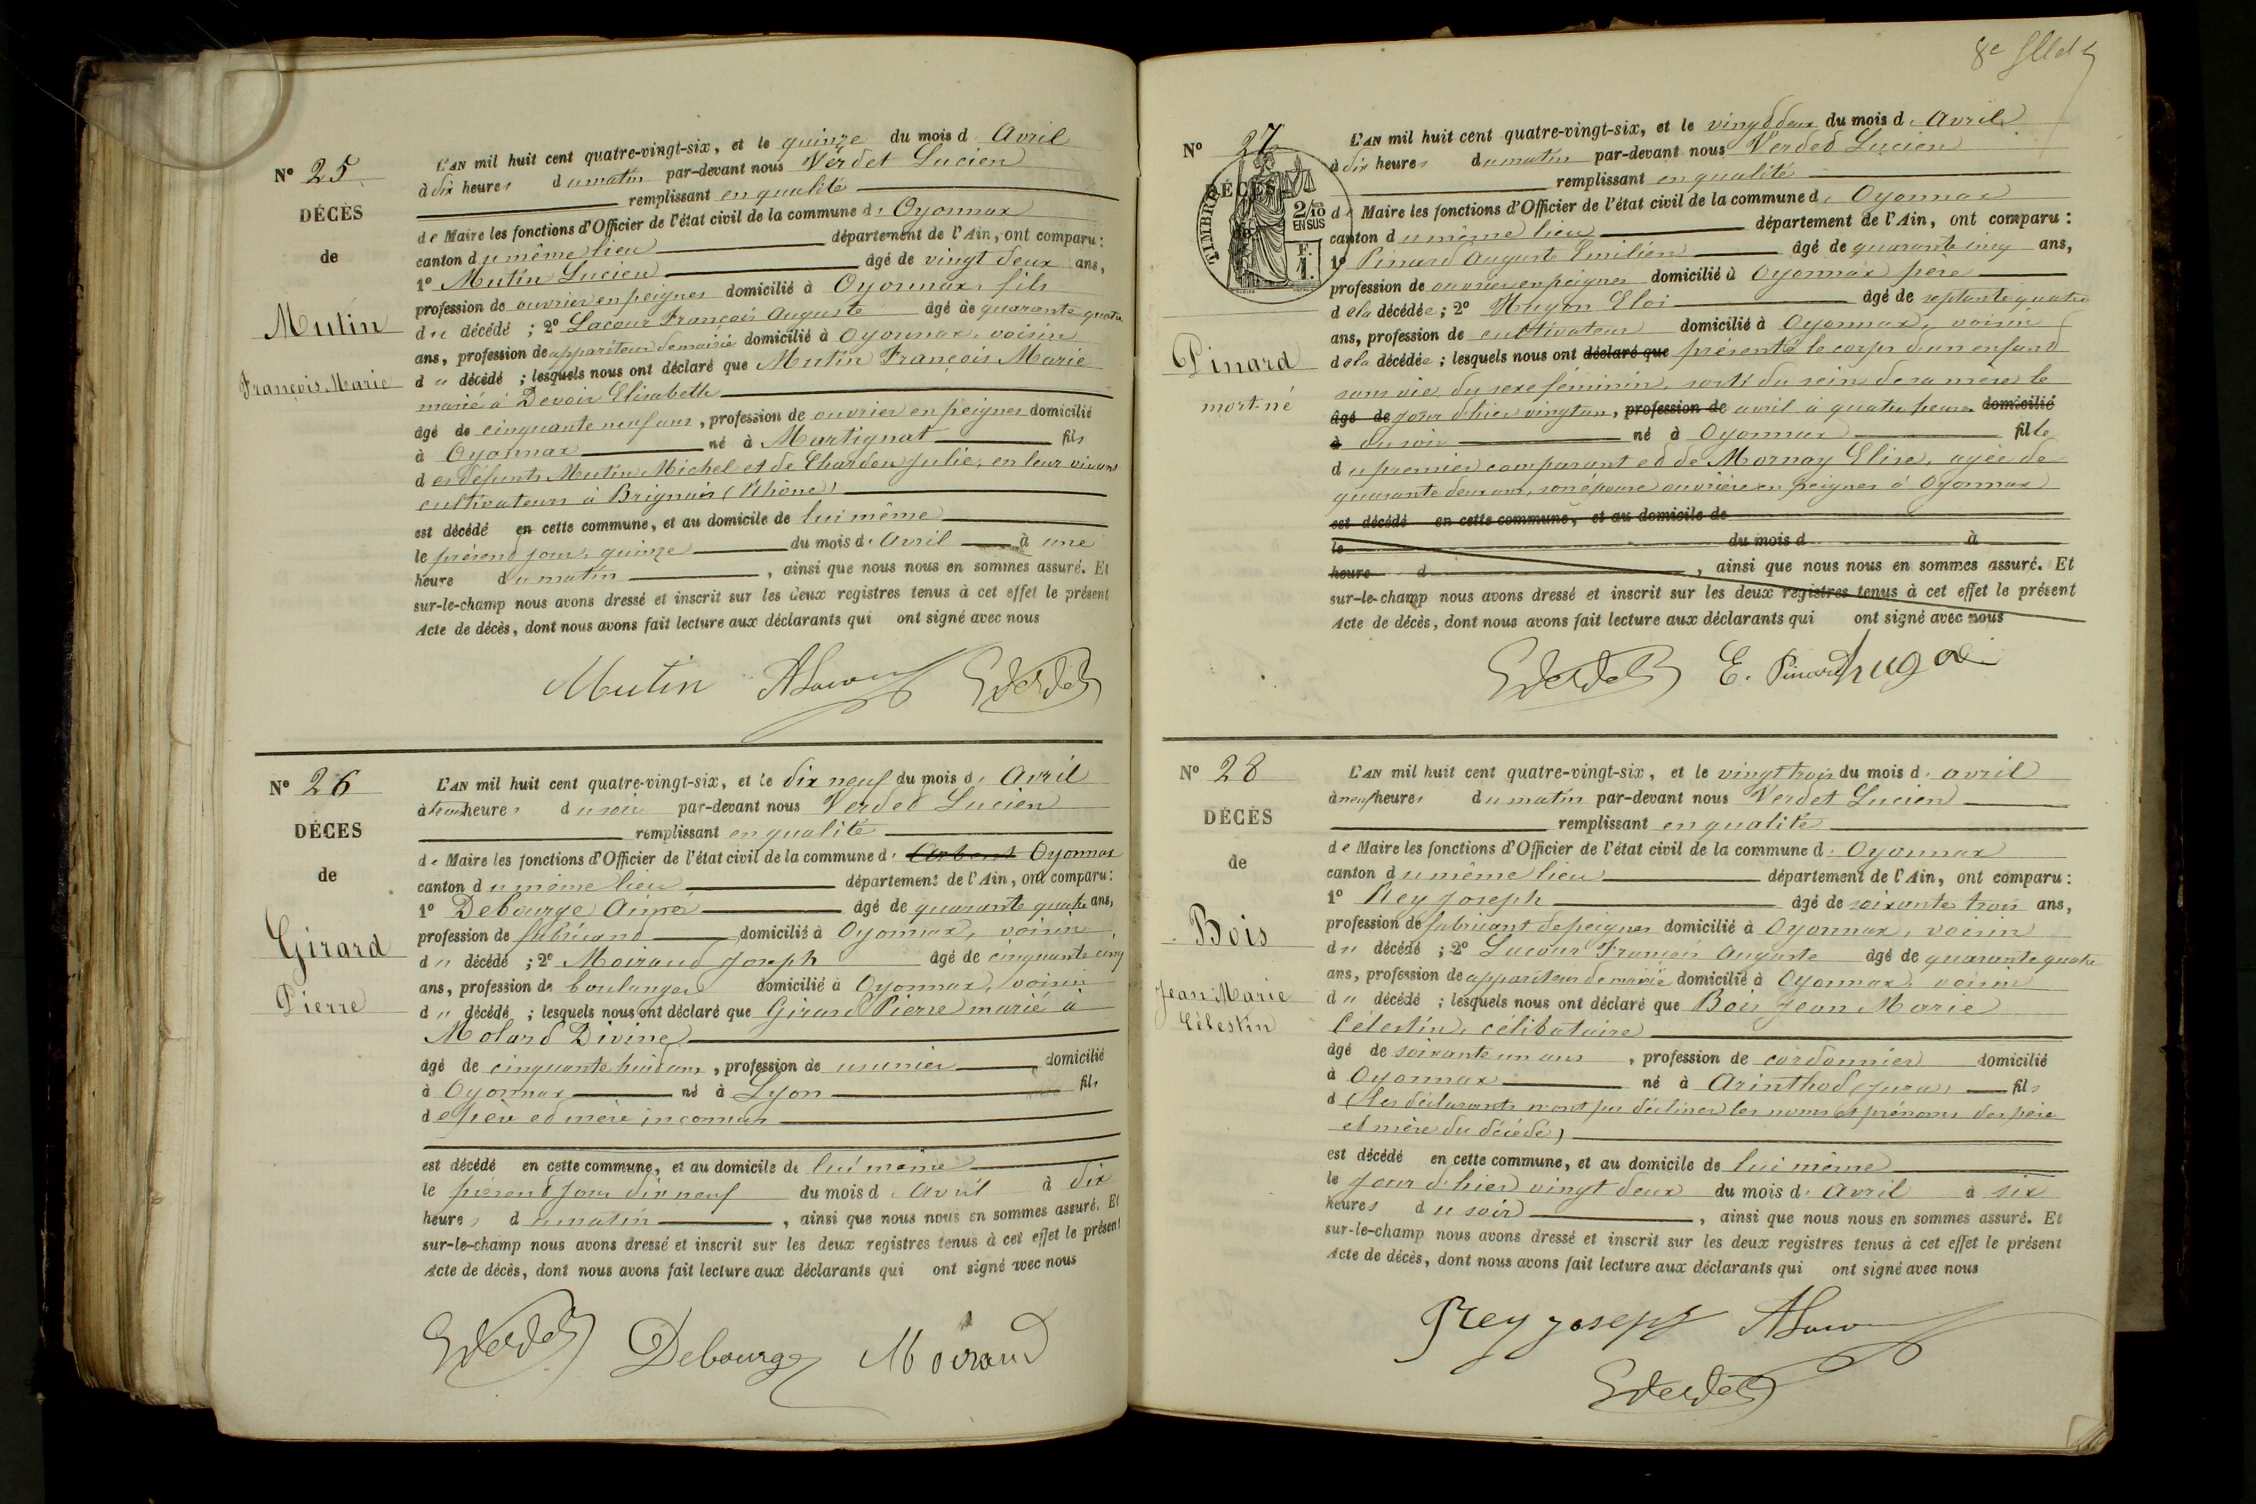 Nº 25
DÉCÈS
de
Mutin
François Marie
L'AN mil huit cent quatre-vingt-six, et le quinze du mois d'Avril
à dix heures du matin par-devant nous Verdet Lucien
remplissant en qualité
de Maire les fonctions d'Officier de l'état civil de la commune d'Oyonnax
canton du même lieu département de l'Ain, ont comparu :
1º Mutin Lucien âgé de vingt deux ans,
profession de ouvrier en peignes domicilié à Oyonnax, fils
du décédé ; 2º Lacour François Auguste âgé de quarante quatre
ans, profession de appariteur de mairie domicilié à Oyonnax, voisin
du décédé ; lesquels nous ont déclaré que Mutin François Marie
marié à Devoir Elisabeth
âgé de cinquante neuf ans, profession de ouvrier en peignes domicilié
à Oyonnax né à Martignat fils
des défunts Mutin Michel et de Chardon Julie, en leur vivant
cultivateurs à Brignais (Rhône)
est décédé en cette commune, et au domicile de lui même
le présent jour, quinze du mois d'Avril à une
heure du matin, ainsi que nous nous en sommes assuré. Et
sur-le-champ nous avons dressé et inscrit sur les deux registres tenus à cet effet le présent
Acte de décès, dont nous avons fait lecture aux déclarants qui ont signé avec nous
Mutin ALacour Verdet
Nº 26
DÉCES
de
Girard
Pierre
L'AN mil huit cent quatre-vingt-six, et le dix neuf du mois d'Avril
à trois heures du soir par-devant nous Verdet Lucien
remplissant en qualité
de Maire les fonctions d'Officier de l'état civil de la commune d'Arbent Oyonnax
canton du même lieu département de l'Ain, ont comparu :
1º Debourge Aimé âgé de quarante quatre ans,
profession de fabricant domicilié à Oyonnax, voisin
du décédé ; 2º Moiraud Joseph âgé de cinquante cinq
ans, profession de boulanger domicilié à Oyonnax, voisin
du décédé ; lesquels nous ont déclaré que Girard Pierre marié à
Molard Divine
âgé de cinquante huit ans, profession de usinier domicilié
à Oyonnax né à Lyon fils
de père et mère inconnus
est décédé en cette commune, et au domicile de lui même
le présent jour dix neuf du mois d'Avril à dix
heures du matin, ainsi que nous nous en sommes assuré. Et
sur-le-champ nous avons dressé et inscrit sur les deux registres tenus à cet effet le présent
Acte de décès, dont nous avons fait lecture aux déclarants qui ont signé avec nous
Verdet Debourge Moiraud
8e
Nº 27
DÉCÈS
de
TIMBRE
2/10
EN SUS
F.
1.
Pinard
mort-né
L'AN mil huit cent quatre-vingt-six, et le vingt deux du mois d'Avril
à dix heures du matin par-devant nous Verdet Lucien
remplissant en qualité
de Maire les fonctions d'Officier de l'état civil de la commune d'Oyonnax
canton du même lieu département de l'Ain, ont comparu :
1º Pinard Auguste Emilien âgé de quarante cinq ans,
profession de ouvrier en peignes domicilié à Oyonnax père
de la décédée ; 2º Hugon Eloi âgé de septante quatre
ans, profession de cultivateur domicilié à Oyonnax, voisin
de la décédée ; lesquels nous ont déclaré que présenté le corps d'un enfant
sans vie, du sexe féminin, sorti du sein de sa mère le
âgé de jour d'hier vingt un, profession de avril à quatre heures domicilié
à du soir né à Oyonnax fille
du premier comparant et de Mornay Elise, agée de
quarante deux ans, son épouse ouvrière en peignes à Oyonnax
est décédé en cette commune, et au domicile de
le du mois d à
heure d, ainsi que nous nous en sommes assuré. Et
sur-le-champ nous avons dressé et inscrit sur les deux registres tenus à cet effet le présent
Acte de décès, dont nous avons fait lecture aux déclarants qui ont signé avec nous
Verdet E. Pinard hugon
Nº 28
DÉCÈS
de
Bois
Jean Marie
Célestin
L'AN mil huit cent quatre-vingt-six, et le vingt trois du mois d'avril
à neuf heures du matin par-devant nous Verdet Lucien
remplissant en qualité
de Maire les fonctions d'Officier de l'état civil de la commune d'Oyonnax
canton du même lieu département de l'Ain, ont comparu :
1º Rey Joseph âgé de soixante trois ans,
profession de fabricant de peignes domicilié à Oyonnax, voisin
du décédé ; 2º Lacour François Auguste âgé de quarante quatre
ans, profession de appariteur de mairie domicilié à Oyonnax, voisin
du décédé ; lesquels nous ont déclaré que Bois Jean Marie
Célestin, célibataire
âgé de soixante un ans, profession de cordonnier domicilié
à Oyonnax né à Arinthod (Jura) fils
d (les déclarants n'ont pu décliner les noms et prénoms des père
et mère du décédé)
est décédé en cette commune, et au domicile de lui même
le jour d'hier vingt deux du mois d'Avril à six
heures du soir, ainsi que nous nous en sommes assuré. Et
sur-le-champ nous avons dressé et inscrit sur les deux registres tenus à cet effet le présent
Acte de décès, dont nous avons fait lecture aux déclarants qui ont signé avec nous
Rey joseph ALacour
Verdet